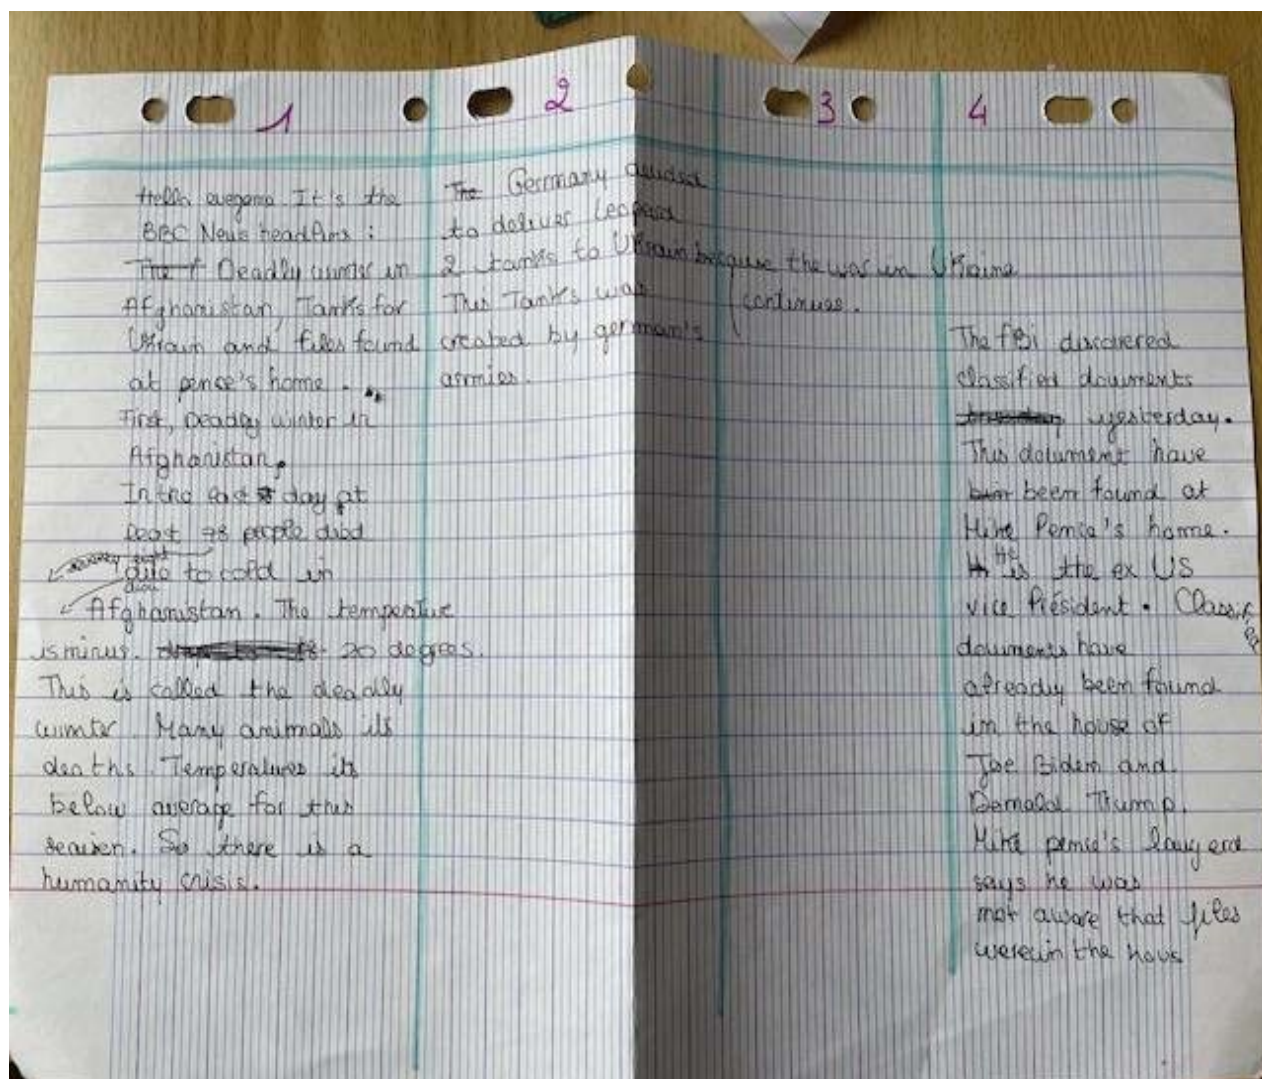 1
Hello evegone. It's the
BBC News headlins :
The f Deadly winter in
Afghanistan, Tanks for
Ukrain and files found
at pence's home.
First, Deadly winter in
Afghanistan,
In the last day at
least 78 people died
seventy eight
due to cold in
diou
Afghanistan. The temperatue
is minus. 20 degrees.
This is called the deadly
winter. Many animals its
deaths. Temperatures its
below average for this
seaisen. So there is a
humanity crisis.
2
The Germany decided
to deliver leopard
2 tanks to Ukrain because the war in Ukraine
This Tanks was
continues.
created by german's
armies.
3
4
The fBi discovered
classified documents
yesterday.
This document have
bin been found at
Mike Pence's home.
He is the ex US
vice Président. Classified
documents have
already been found
in the house of
Joe Biden and
Donald Trump.
Mike pence's lawyerd
says he was
not aware that files
were in the hous